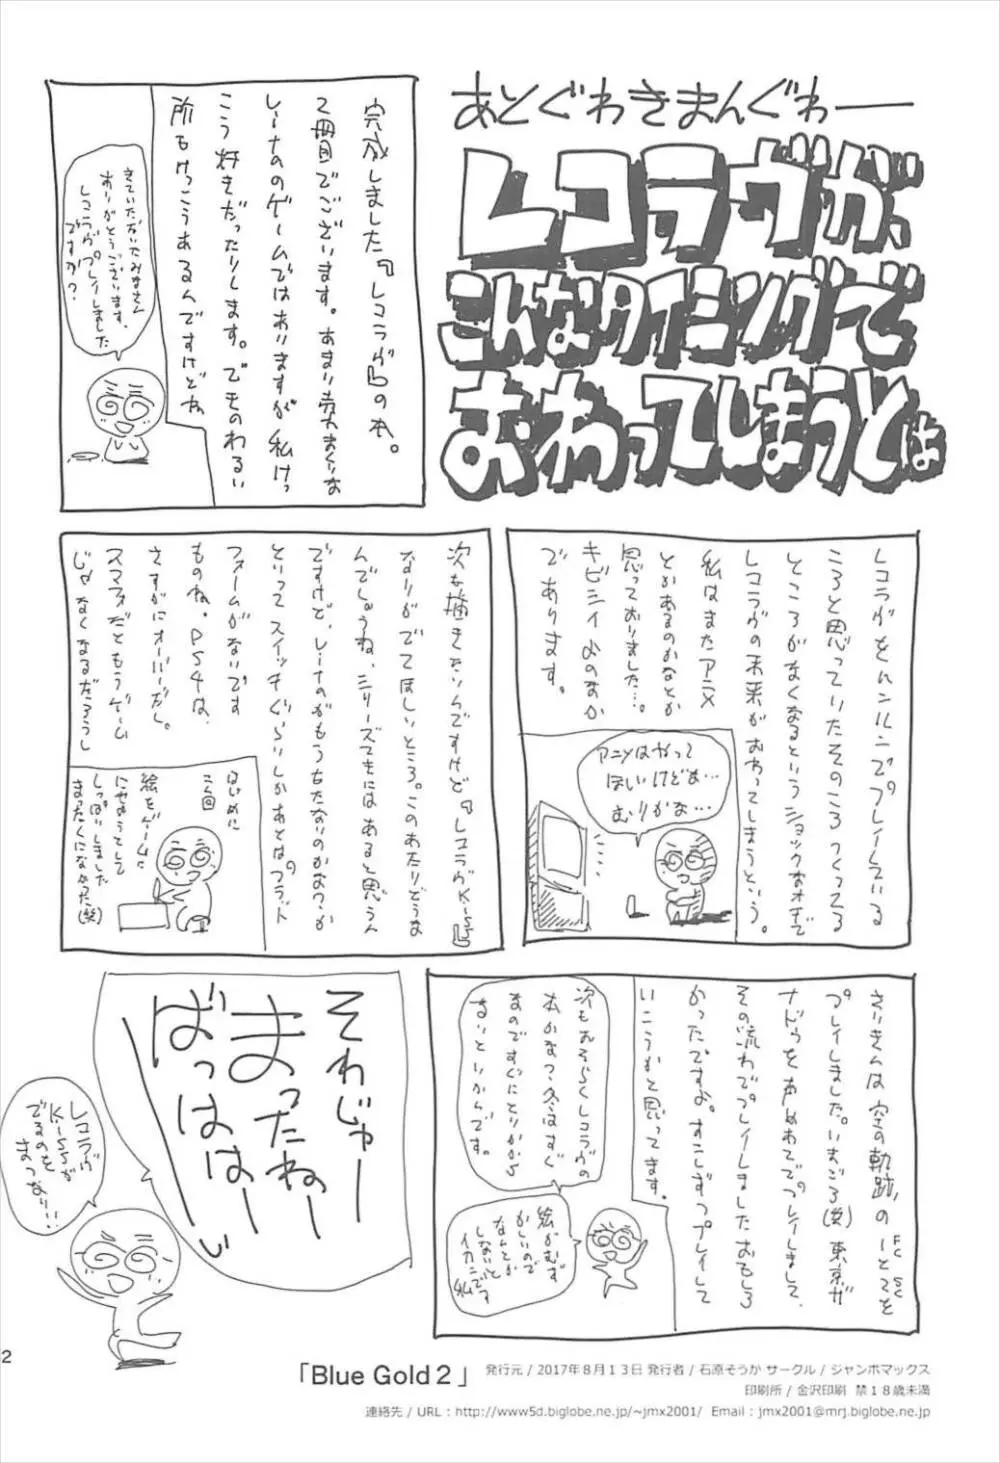 あとぐわきまんぐわー
レコラヴが、
こんなタイミングで
おわってしまうとは
完成しました『レコラヴ』の本。
2冊目でございます。あまり売れまくりな
レーナのゲームではありますが私けっ
こう好きだったりします。でものわるい
所もけっこうあるんですけどね
きていただいたみなさん
ありがとうございます。
レコラヴプレイしました
ですか?
レコラヴをハンルニでプレイしている
ころと思っていたそのころつくってる
ところがなくなるというショックなオチで
レコラヴの未来がおわってしまうという。
私はまたアニメ
とかあるのかなとか
思っておりました…。
キビシイよのなか
であります。
アニメはやって
ほしいけどぬ…
むりかな…
次も描きたいんですけど『レコラヴKiss』
なりがでてほしいところ。このあたりどうな
んでしょうね、シリーズてきにはあると思うん
ですけど、レーナのがもうちたないのかなわか
といってスイッチぐらいしかあとはプラット
フォームがないです
ものね。PS4は、
さすがにオーバーだし。
スマフォだともうゲーム
じゃなくなるだろうし
はじめに
こん回
絵をゲームに
にせようとして
しっぱいしました
まったくになかった(笑)
さいきんは空の軌跡のFCとSCを
プレイしました。いまごろ(笑)東京ザ
ナドゥをあわせてプレイしまして、
その流れでプレイしましたおもしろ
かったですよ。すこしずつプレイして
いこうかと思ってます。
次もおそらくレコラヴの
本かなっ?冬はすぐ
きますのですぐにとりかから
ないといかんです。
絵がむず
かしいので
なんとか
しないと
イカンです
私
そわじゃー
まったねー
ばっはは〜い
レコラヴ
Kissが
でるのを
まつなり!!
2
「Blue Gold 2」
発行元 / 2017年8月13日 発行者 / 石原そうか サークル / ジャンボマックス
印刷所 / 金沢印刷 禁18歳未満
連絡先 / URL : http://www5d.biglobe.ne.jp/~jmx2001/ Email : jmx2001@mrj.biglobe.ne.jp